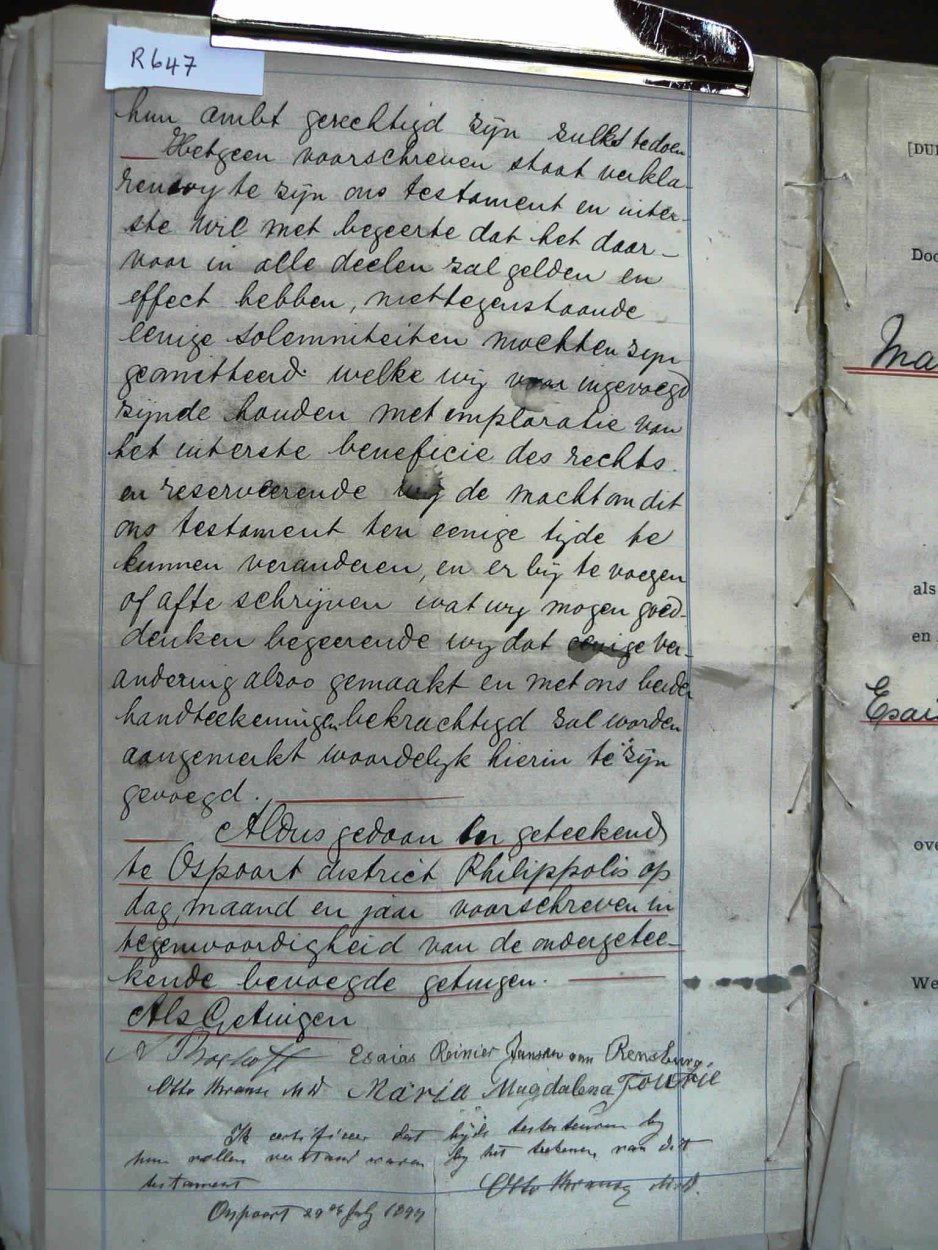 R647
hun ambt gerechtigd zijn zulks te doen
Hetgeen voorschreven staat verkla-
ren wy te zijn ons testament en uiter-
ste wil met begeerte dat het daar-
voor in alle deelen zal gelden en
effect hebben, niettegenstaande
eenige solemniteiten mochten zyn
geomitteerd welke wij voor ingevoegd
zijnde houden met imploratie van
het uiterste beneficie des rechts
en reserveerende wij de macht om dit
ons testament ten eenige tijde te
kunnen veranderen, en er bij te voegen
of afte schrijven wat wy mogen goed-
denken begeerende wij dat eenige ver-
andering alzoo gemaakt en met ons beider
handteekeningen bekrachtigd zal worden
aangemerkt woordelijk hierin te zijn
gevoegd.
Aldus gedaan en geteekend
te Ospoort district Philippolis op
dag, maand en jaar voorschreven in
tegenwoordigheid van de ondergetee-
kende bevoegde getuigen.
Als Getuigen
Esaias Reinier Jansen van Rensburg
Otto Krause M.D. Maria Magdalena FOURIE
Ik certificeer dat bijde testateuren by
hun vollen verstand waren by het teekenen van dit
testament
Otto Krause M.D.
Ospoort 29 July
[DU
Doo
Ma
als
en
Esai
ove
We